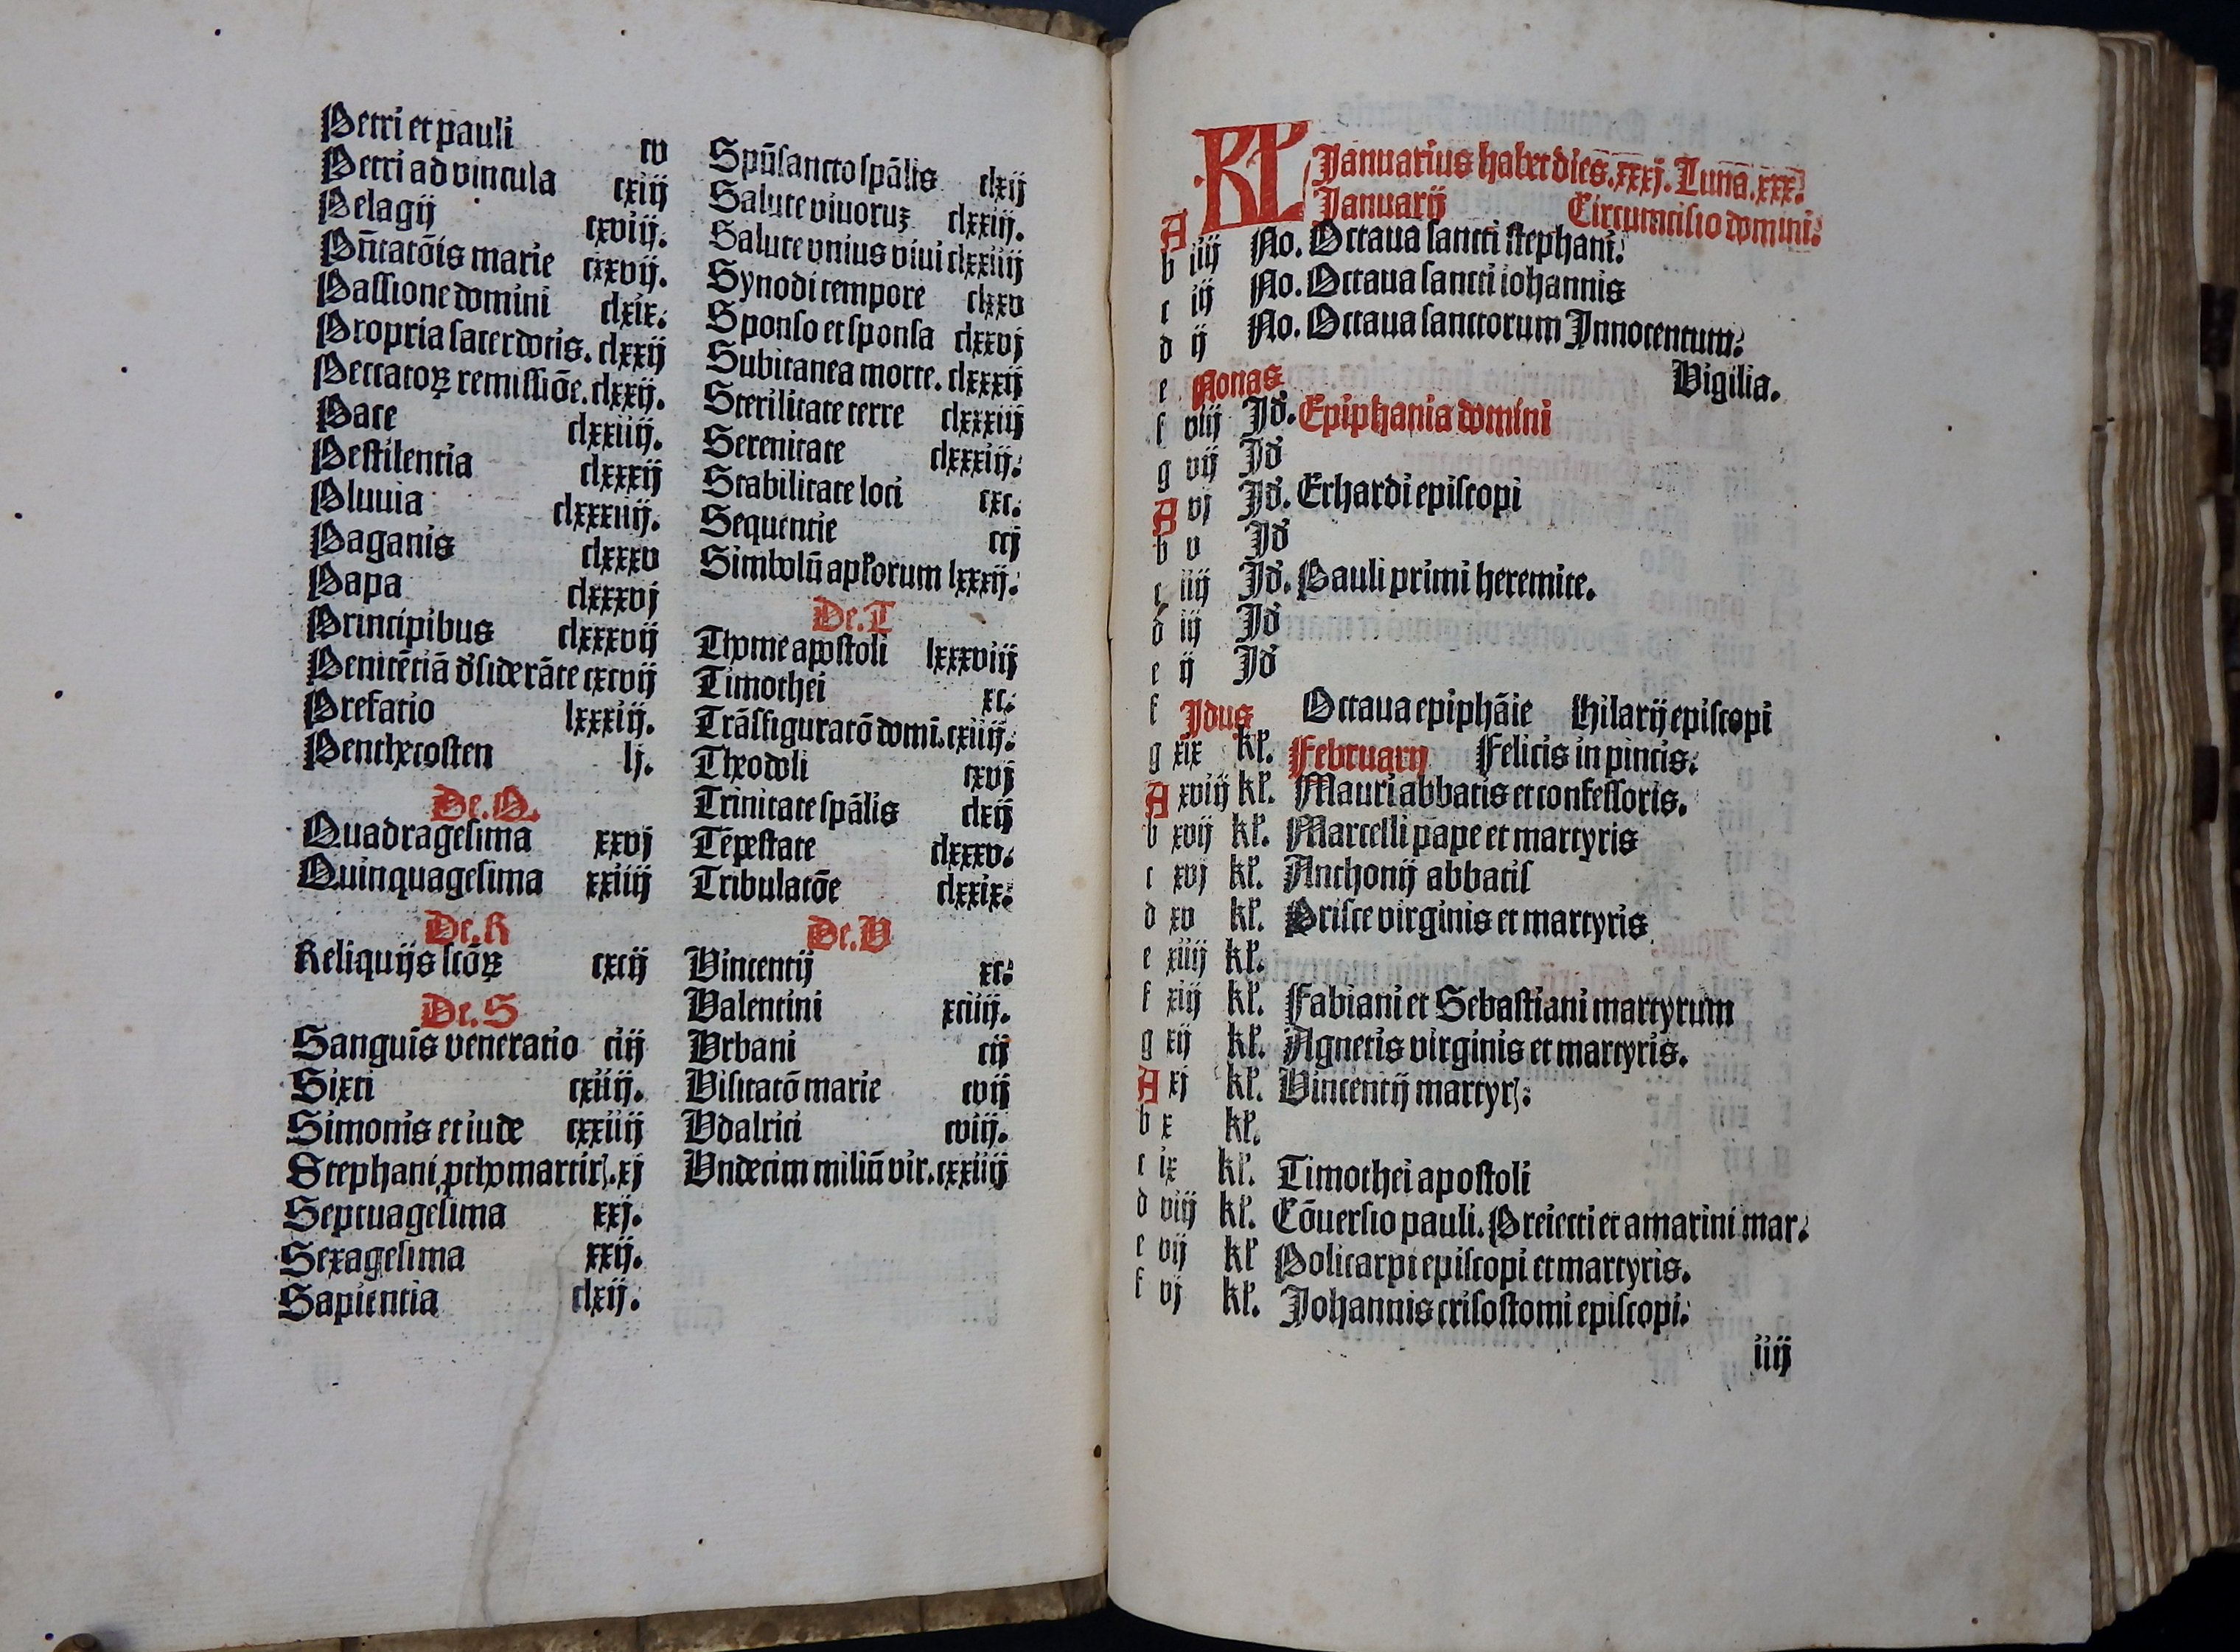 Petri et pauli cv
Petri ad vincula cxiij
Pelagij cxviij.
Pn̄tacōis marie cixvij.
Passione domini clxix.
Propria sacerdotis. clxxij
Peccatoꝝ remissiōe. clxxij.
Pace clxxiiij.
Pestilentia clxxxij
Pluuia clxxxiiij.
Paganis clxxxv
Papa clxxxvj
Principibus clxxxvij
Penitētiā d̓siderāte cxcvij
Prefatio lxxxiij.
Penthecosten lj.
De. Q.
Quadragesima xxvj
Quinquagesima xxiiij
De. R
Reliquijs scōꝝ cxcij
De. S
Sanguis veneratio ciij
Sixti cxiiij.
Simonis et iude cxxiiij
Stephani ꝓthomartir̄. xj
Septuagesima xxj.
Sexagesima xxij.
Sapientia clxij.
Spūsancto spālis clxij
Salute viuoruꝫ clxxiij.
Salute vnius viui clxxiiij
Synodi tempore clxxv
Sponso et sponsa clxxvj
Subitanea morte. clxxxij
Sterilitate terre clxxxiij
Serenitate clxxxiij.
Stabilitate loci cxc.
Sequentie ccj
Simbolū apłorum lxxxij.
De. T
Thome apostoli lxxxviij
Timothei xc.
Trāsfiguratō domi. cxiiij.
Theodoli cxvj
Trinitate spālis clxij
Tēpestate clxxxv.
Tribulatōe clxxix.
De. V
Vincentij xc.
Valentini xciiij.
Vrbani cij
Visitatō marie cvij
Vdalrici cviij.
Vndecim miliū vir. cxxiiij
KL Januarius habet dies. xxxj. Luna. xxx.
A Januarij Circumcisio domini.
b iiij No. Octaua sancti stephani.
c iij No. Octaua sancti iohannis
d ij No. Octaua sanctorum Innocentum.
e Nonas Vigilia.
f viij Id̓. Epiphania domini
g vij Id̓
A vj Id̓. Erhardi episcopi
b v Id̓
c iiij Id̓. Pauli primi heremite.
d iij Id̓
e ij Id̓
f Idus Octaua epiphāie Hilarij episcopi
g xix kł. Februarij Felicis in pincis.
A xviij kł. Mauri abbatis et confessoris.
b xvij kł. Marcelli pape et martyris
c xvj kł. Anthonij abbatis
d xv kł. Prisce virginis et martyris
e xiiij kł.
f xiij kł. Fabiani et Sebastiani martyrum
g xij kł. Agnetis virginis et martyris.
A xj kł. Vincentij martyr̄.
b x kł.
c ix kł. Timothei apostoli
d viij kł. Cōuersio pauli. Preiecti et amarini mar.
e vij kł Policarpi episcopi et martyris.
f vj kł. Johannis crisostomi episcopi.
iiij